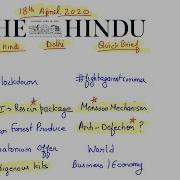 18th April, 2020
THE HINDU
Hindi Delhi Quick Brief
Lockdown #fightagainstcorona
Rescue package * Monsoon Mechanism
Forest Produce Anti-Defection * ?
Offer World
Kits Business / Economy